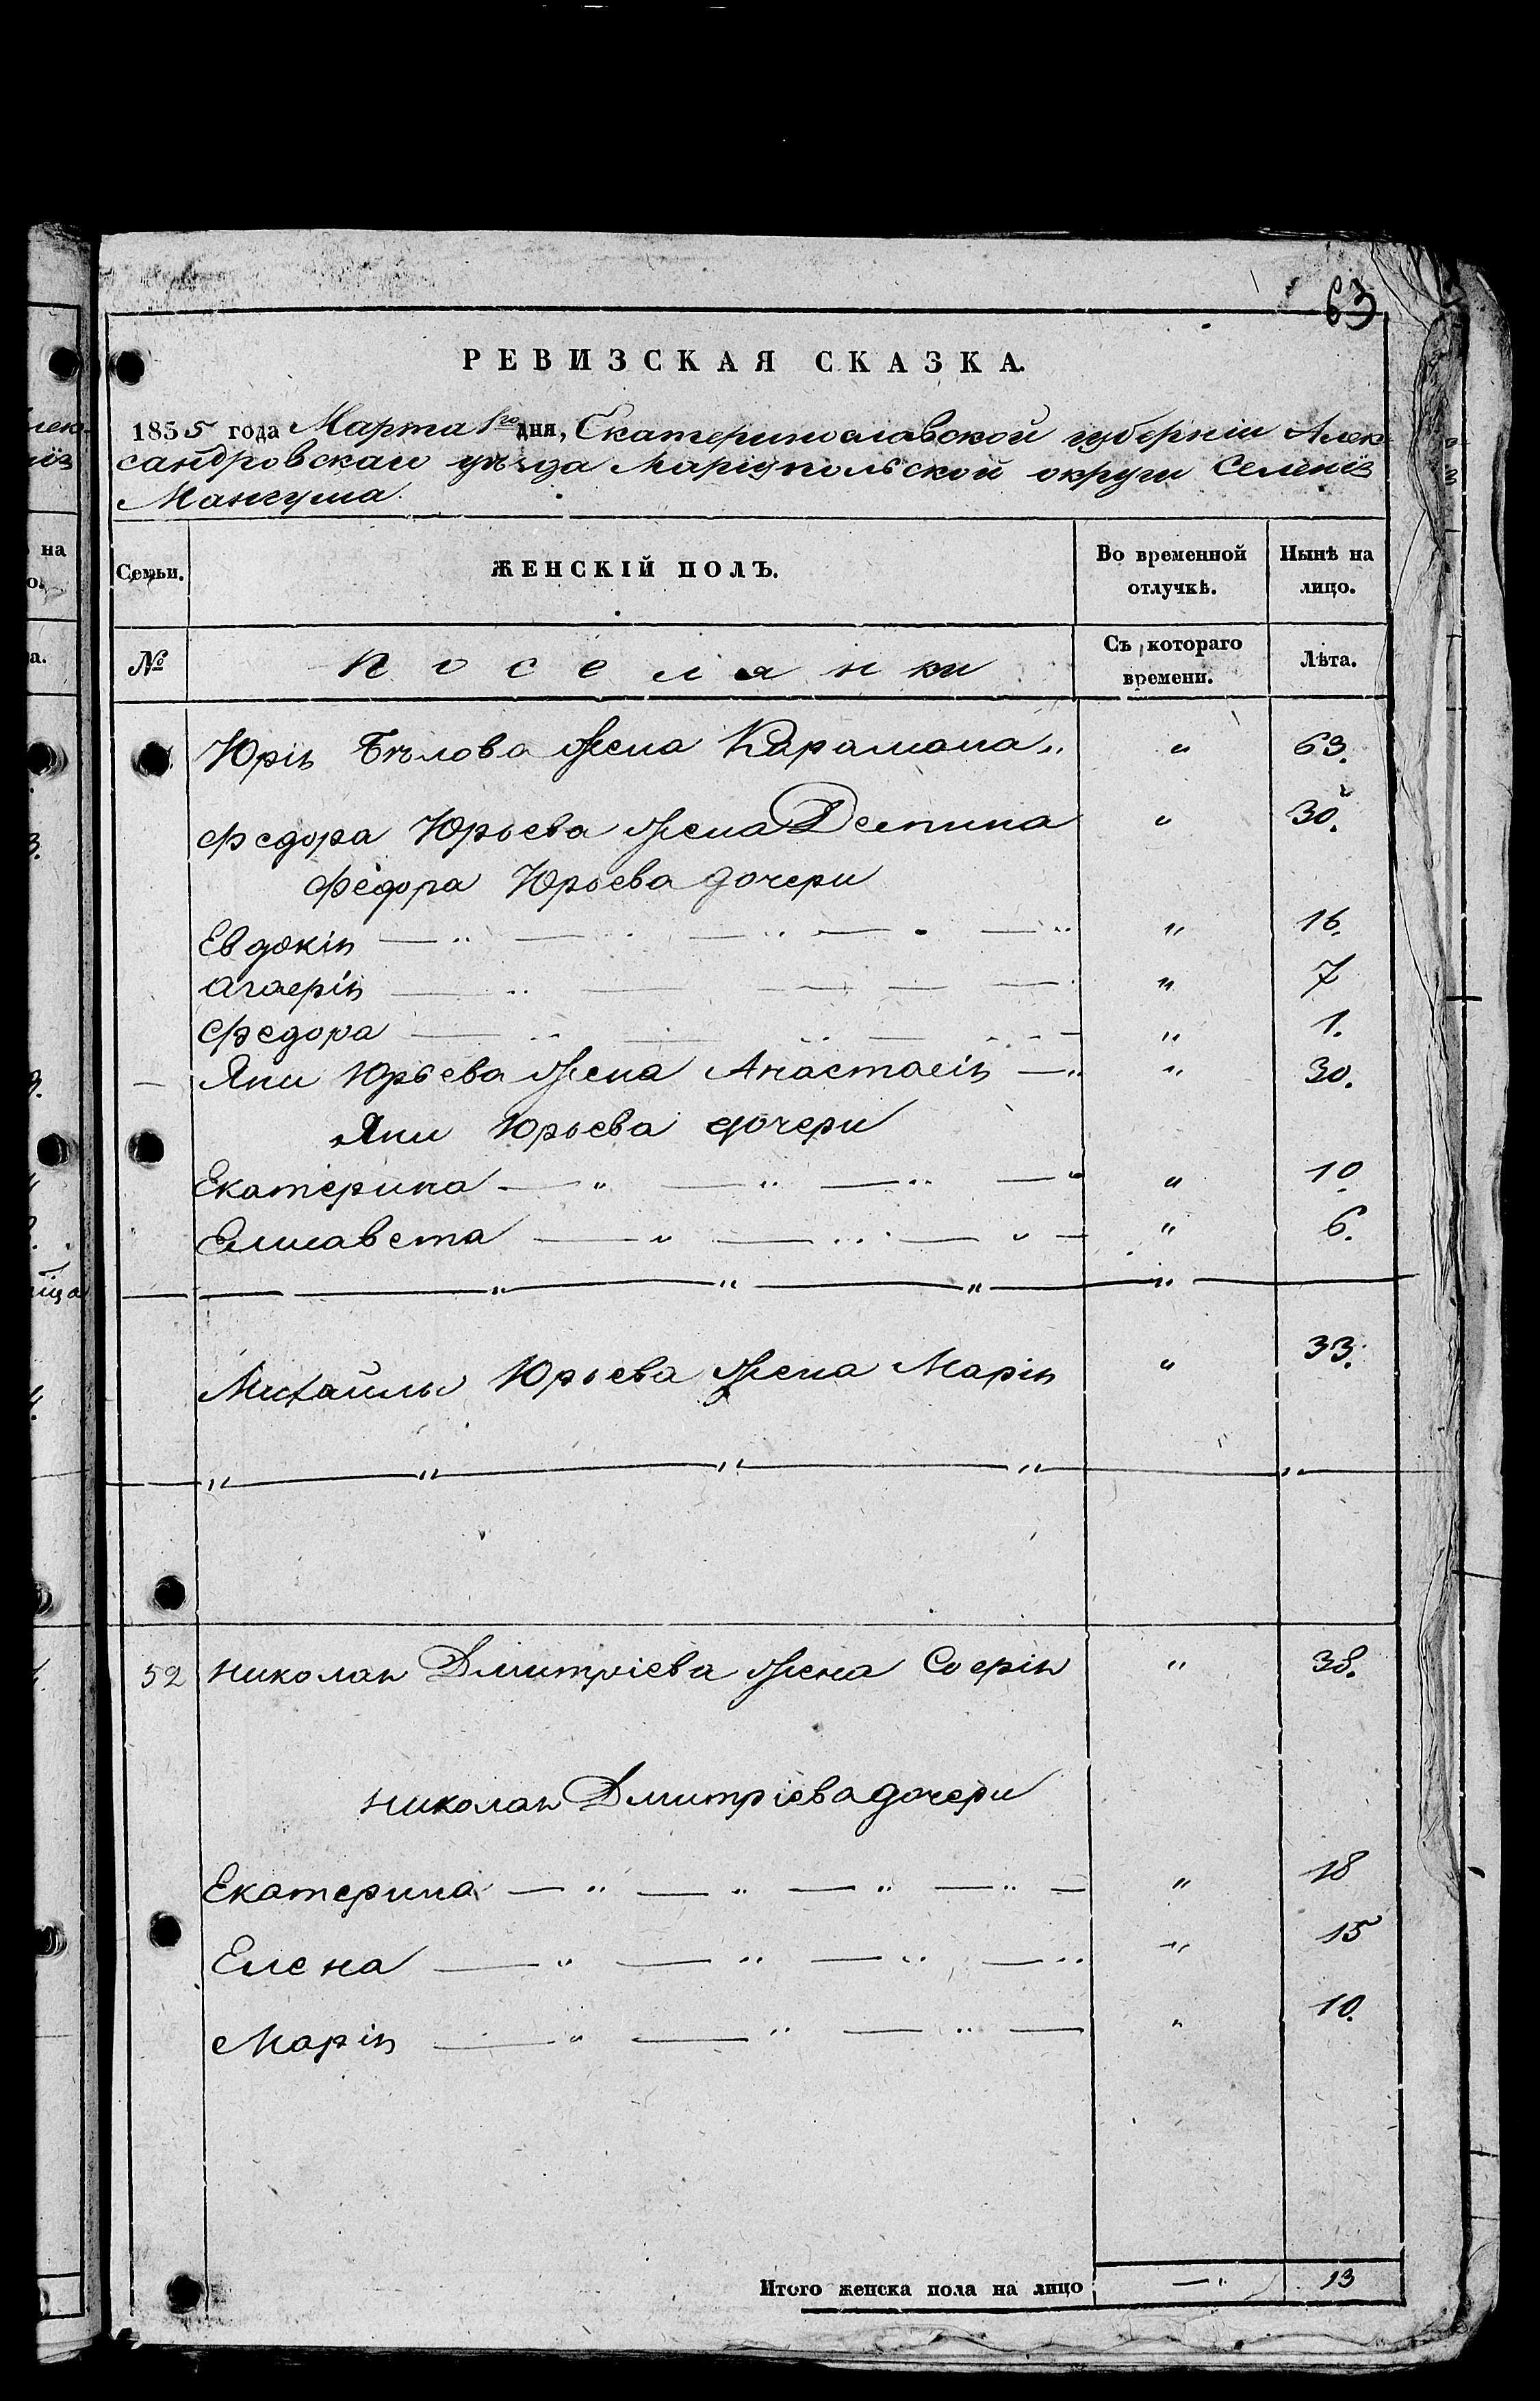 63
РЕВИЗСКАЯ СКАЗКА.
1855 года Марта 1го дня, Екатеринославской губерніи Алек-
сандровскаго уѣзда Маріупольской округи Селенія
Мангуша.
Семьи. ЖЕНСКІЙ ПОЛЪ. Во временной отлучкѣ. Нынѣ на лицо.
№ Поселянки Съ котораго времени. Лѣта.
Юрія Бѣлова жена Карамана " 63.
Федора Юрьева жена Деспина " 30.
Федора Юрьева дочери
Евдокія " 16.
" 7
Федора " 1.
Яни Юрьева жена Анастасія " 30.
Яни Юрьева дочери
Екатерина " 10
Елисавета " 6.
Михайлы Юрьева жена Марія " 33.
52 Николая Дмитріева жена Софія " 38.
Николая Дмитріева дочери
Екатерина " 18
Елена " 15
Марія " 10.
Итого женска пола на лицо — 13